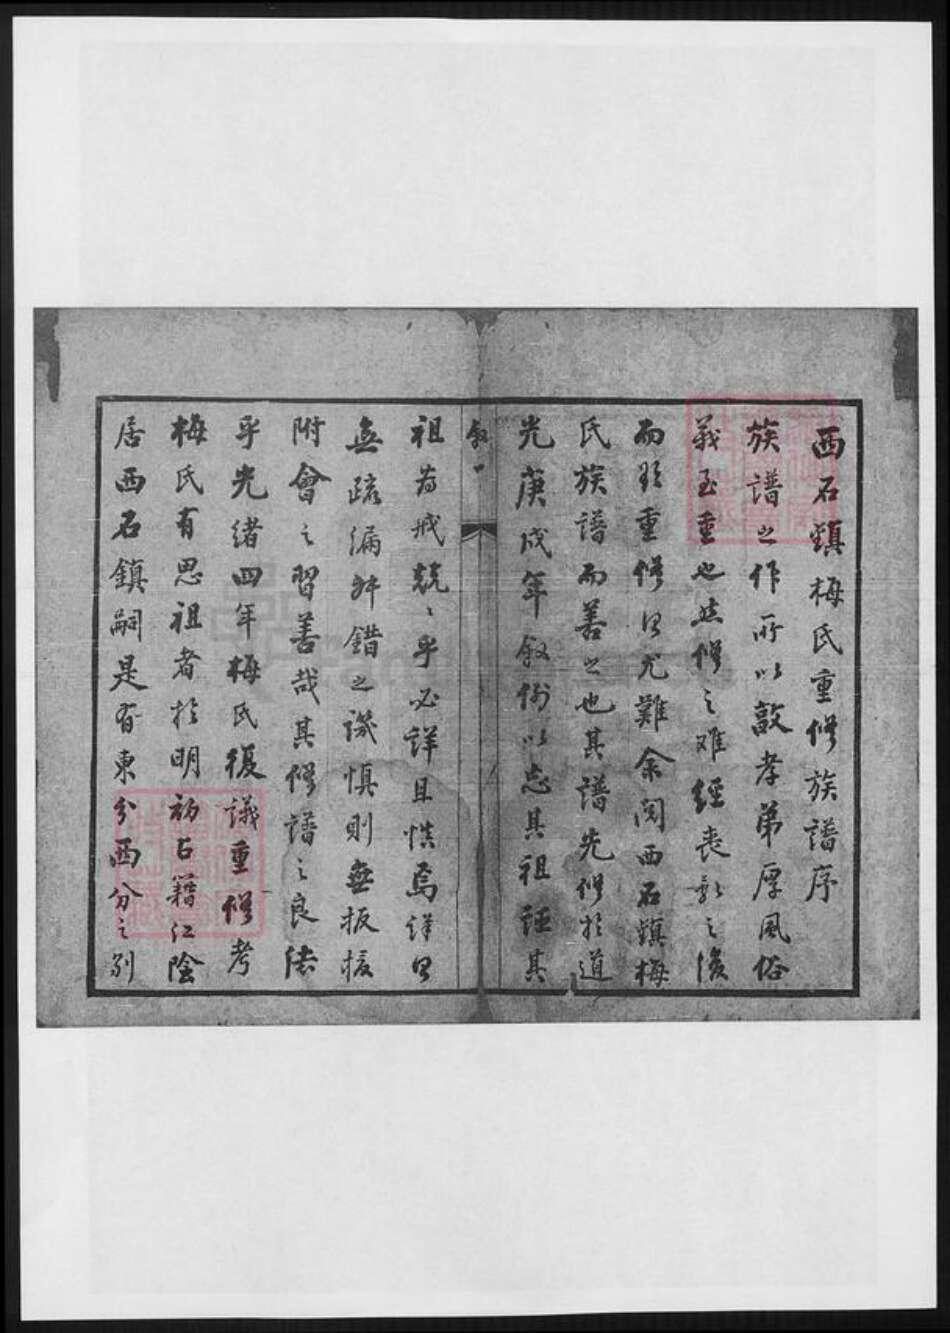 西石鎮梅氏重修族譜序
族譜之作所以敦孝弟厚風俗
義至重也然修之难經喪亂之後
而欲重修得尤難余閱西石鎮梅
氏族譜而善之也其譜先修於道
光庚戌年叙例以忘其祖誣其
叙一
祖为戒兢〻乎必詳且慎焉详則
無疏漏舛錯之譏慎則無扳援
附會之習善哉其修譜之良法
乎光緒四年梅氏復議重修考
梅氏有思祖者於明初占籍江陰
居西石鎮嗣是有東分西分之别